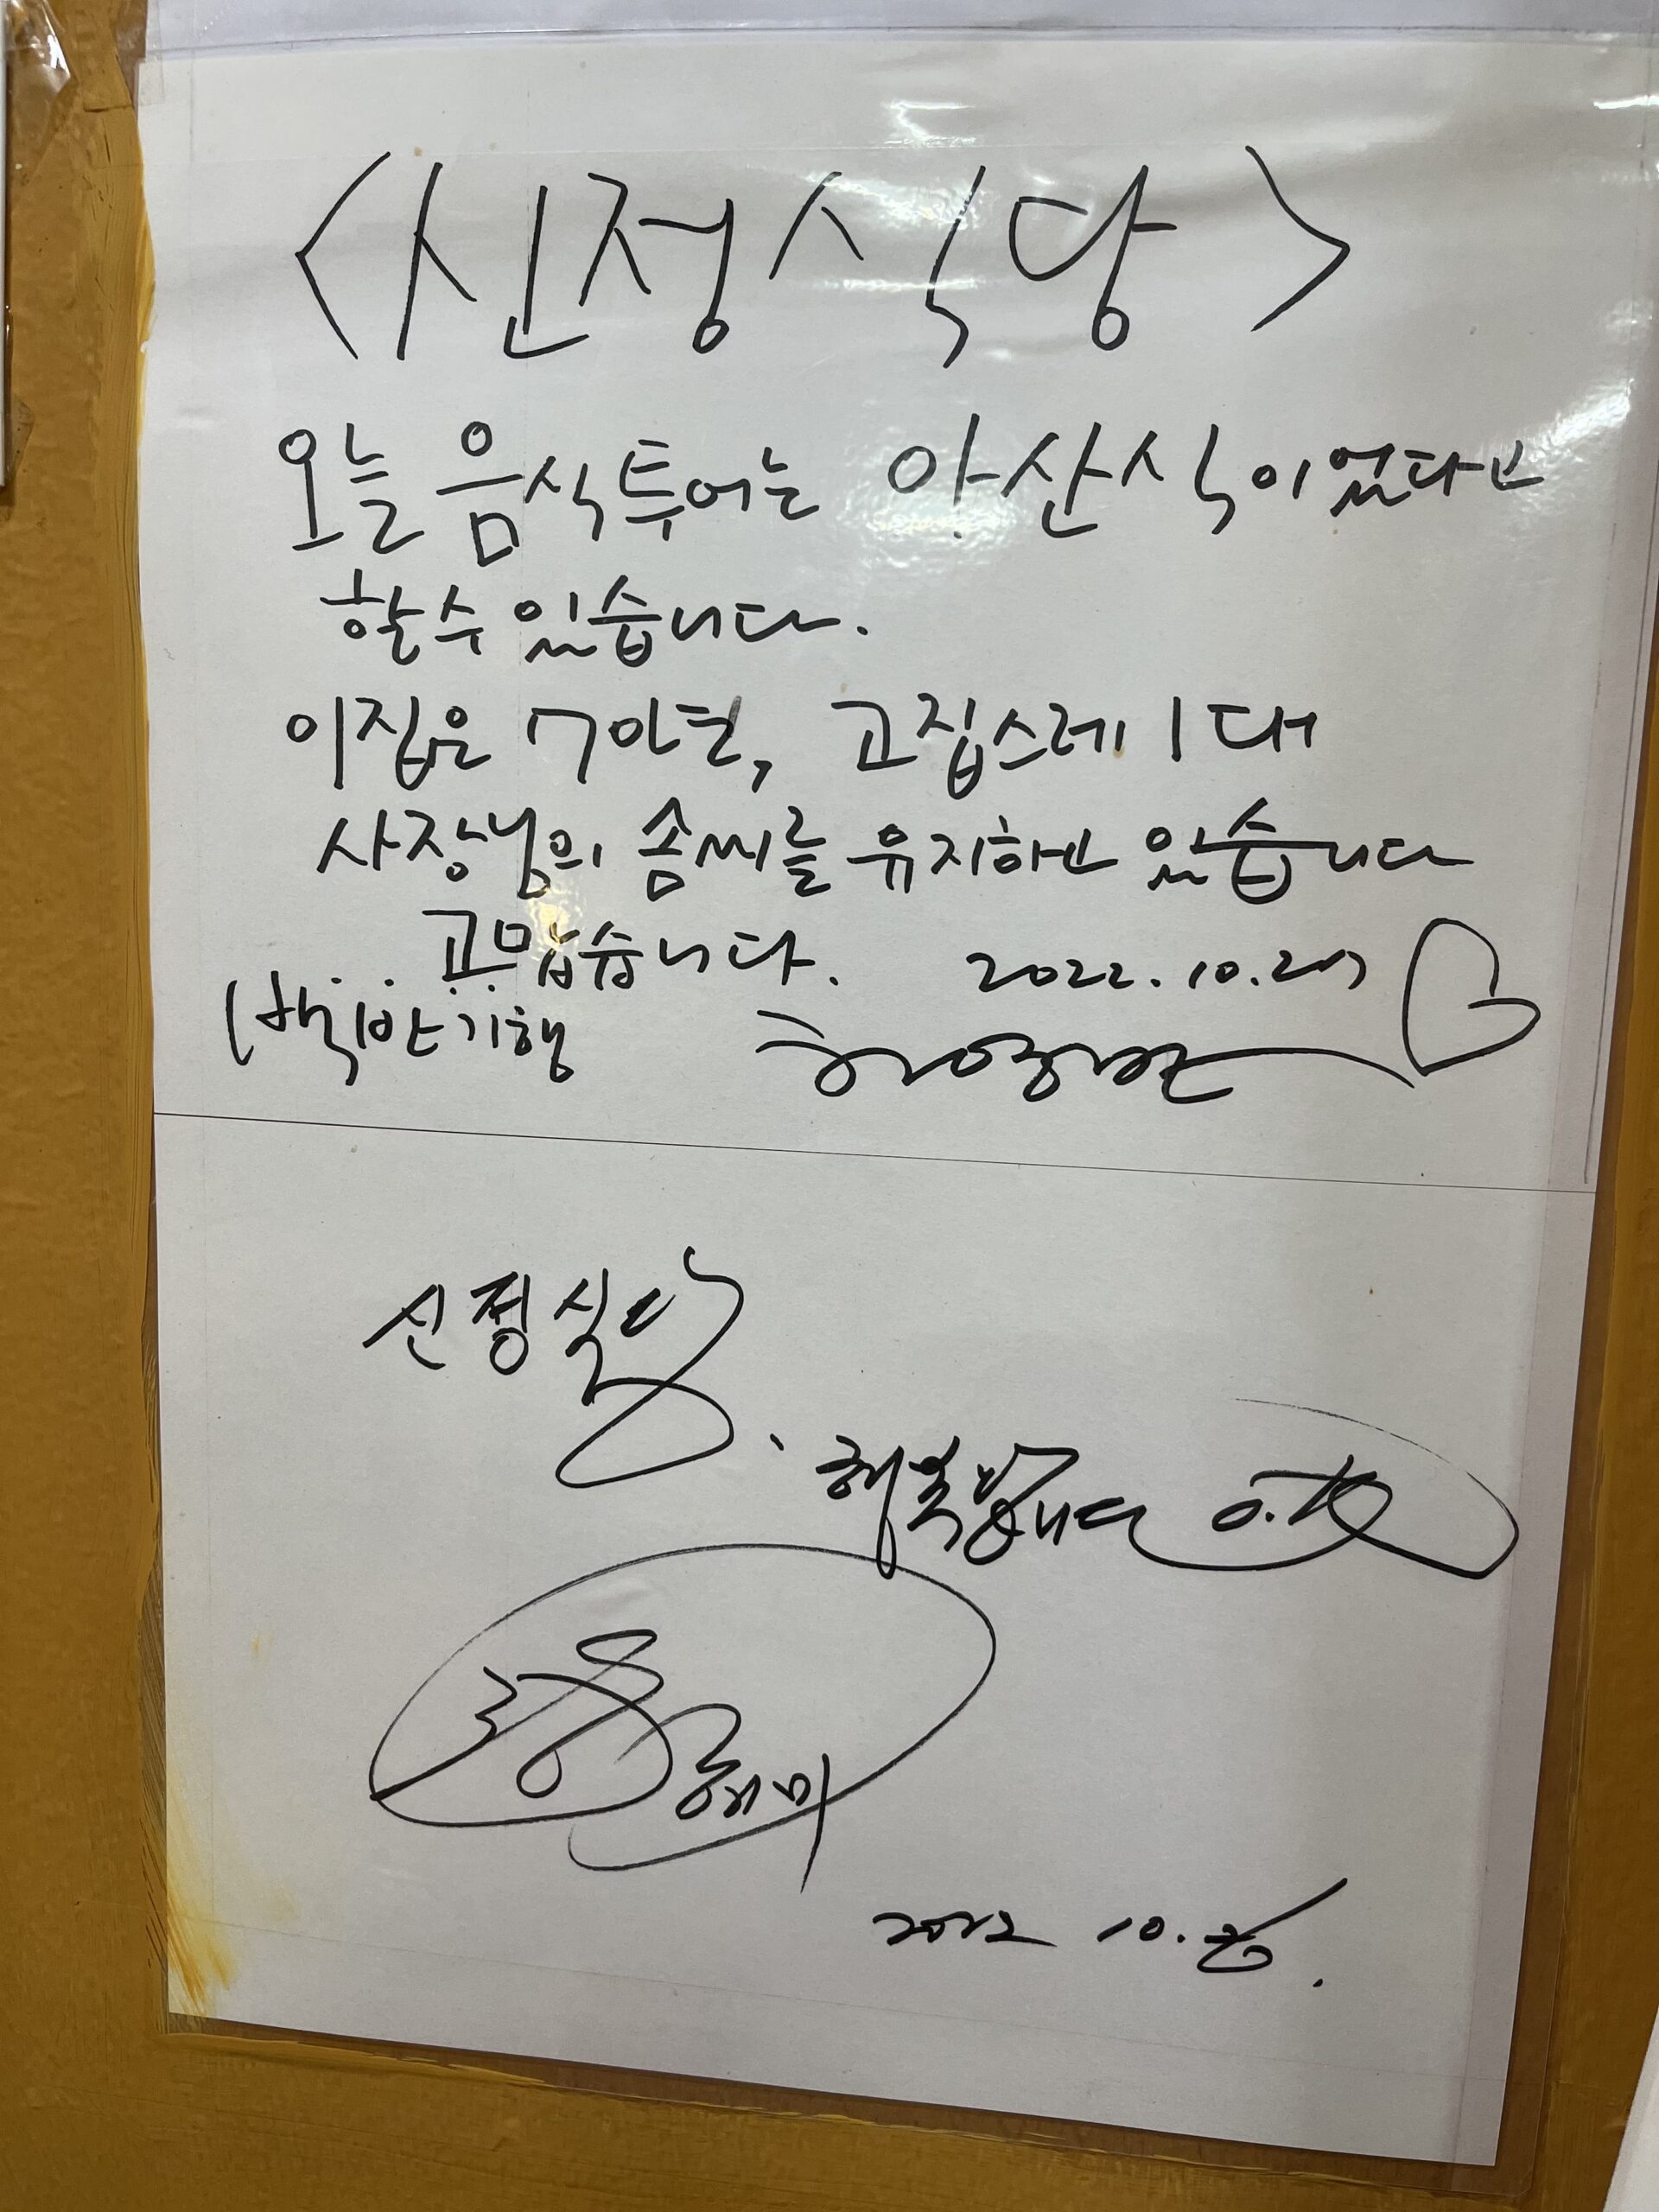 <신정식당>
오늘 음식투어는 아산식이었다고
할 수 있습니다.
이집은 70년, 고집스레 1대
사장님의 솜씨를 유지하고 있습니다
고맙습니다. 2022.10.27
백반기행 허영만
신정식당.
행복합니다
혜미
2022 10.